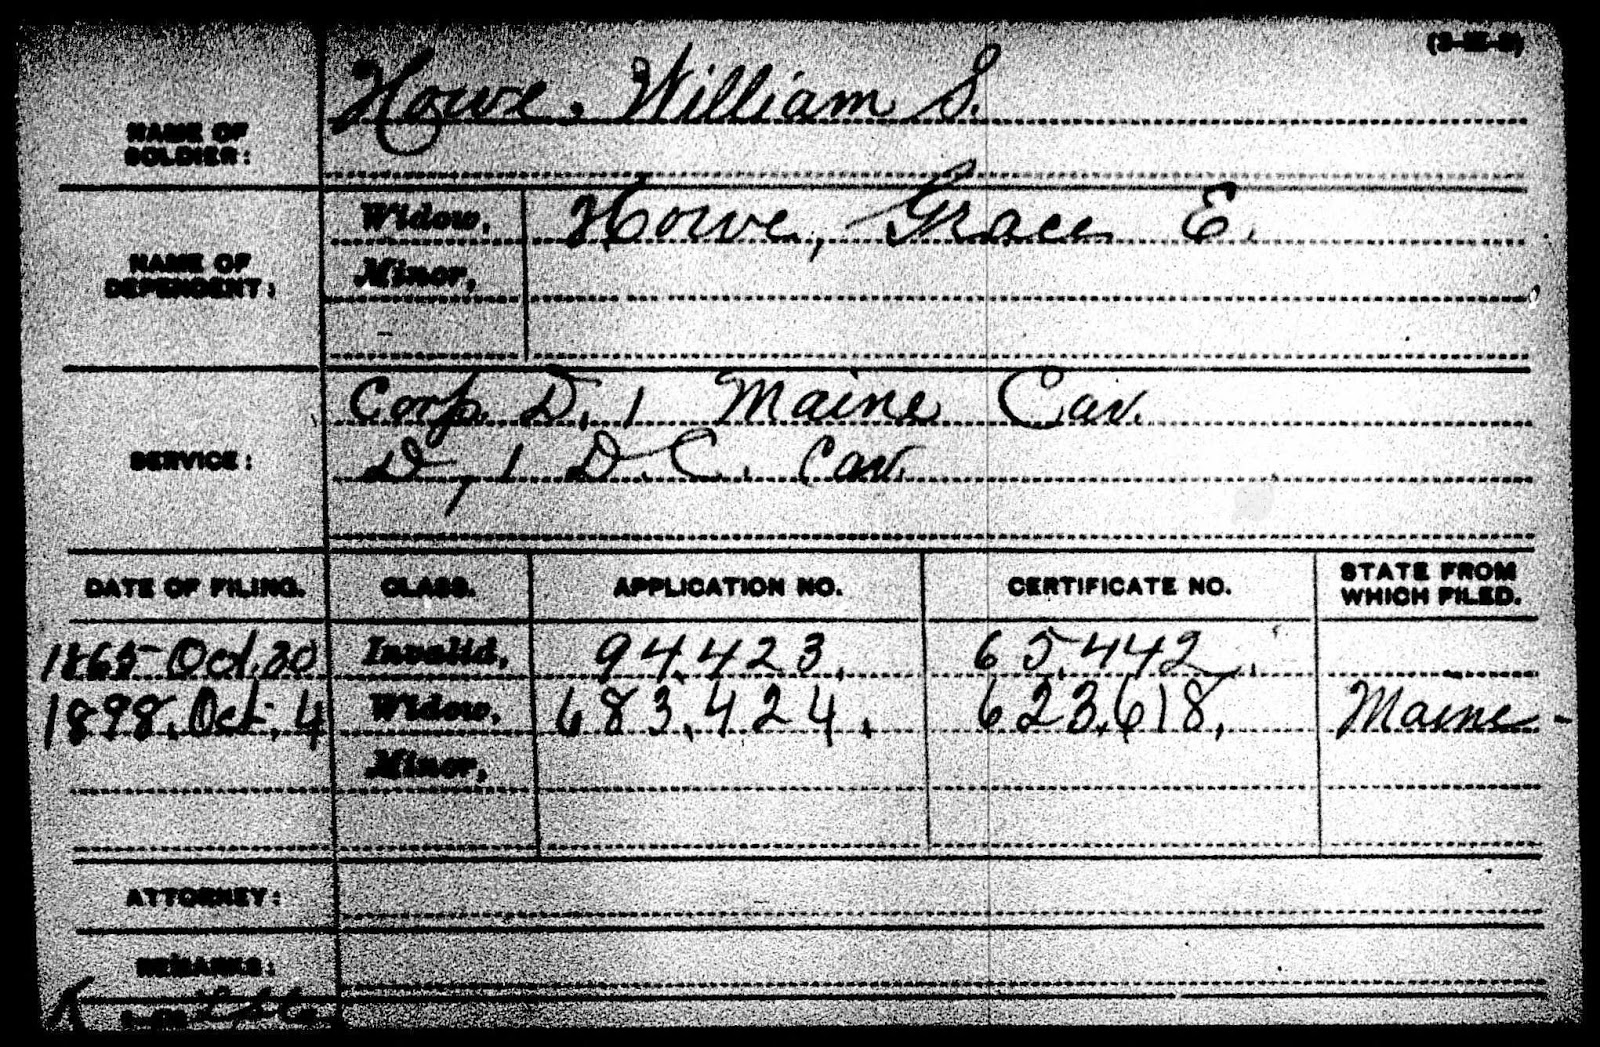 (3-
NAME OF SOLDIER: Howe, William S.
NAME OF DEPENDENT: Widow, Howe, Grace E.
Minor,
SERVICE: Corp. D, 1 Maine Cav.
D, 1 D.C. Cav.
DATE OF FILING. CLASS. APPLICATION NO. CERTIFICATE NO. STATE FROM WHICH FILED.
1865 Oct. 30 Invalid, 94,423. 65,442.
1898, Oct. 4 Widow, 683,424. 623,618. Maine-
Minor,
ATTORNEY:
REMARKS: